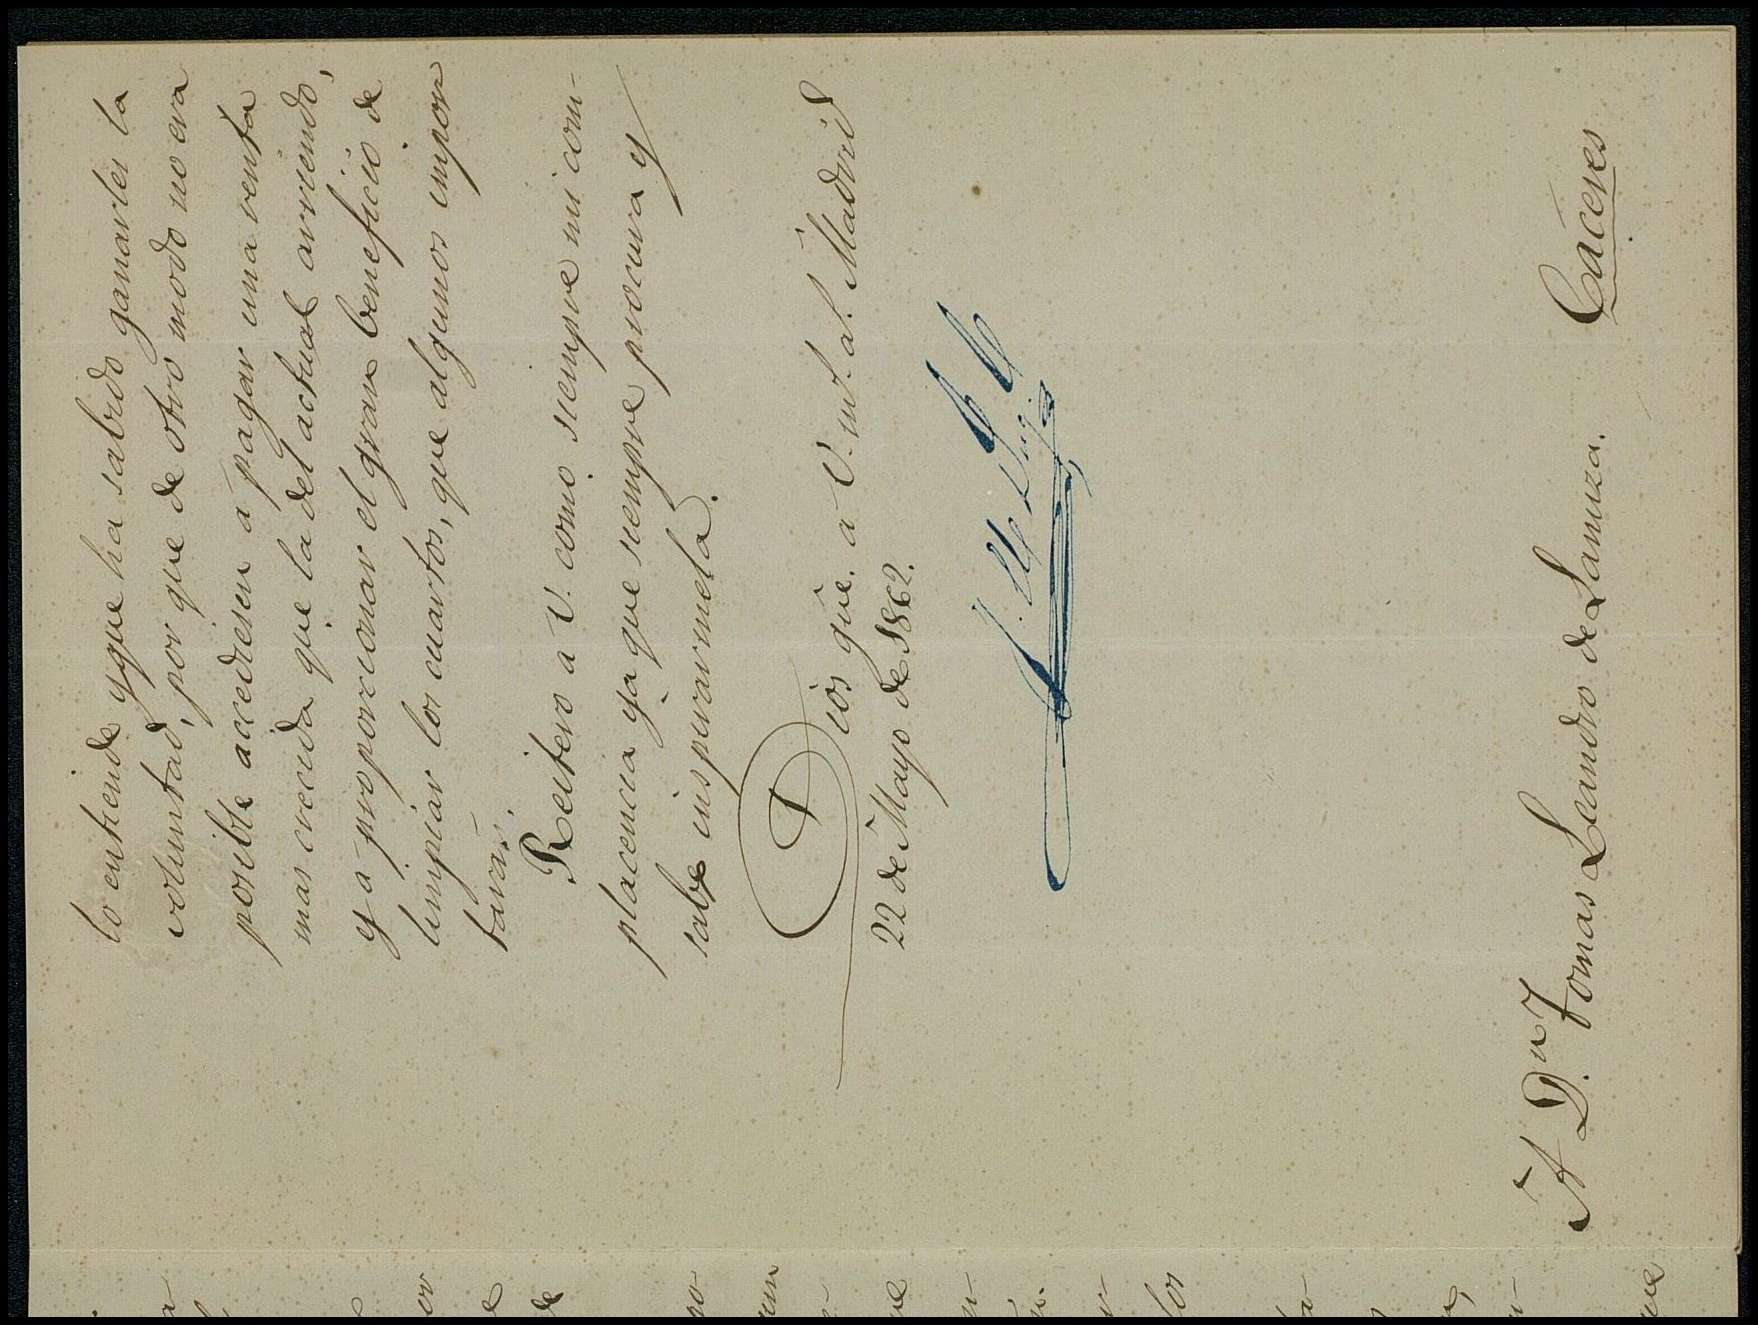 lo entiende y que ha sabido ganarles la
voluntad, por que de otro modo no era
posible accediesen a pagar una renta
mas crecida que la del actual arriendo,
y a proporcionar el gran beneficio de
limpiar los cuartos, que algunos impor
taran.
Reitero a V. como siempre mi com-
placencia ya que siempre procura y
sabe inspirarmela.
Dios gue. a V. ms. as. Madrid
22 de Mayo de 1862.
A Dn Tomas Leandro de Lanuza. Caceres